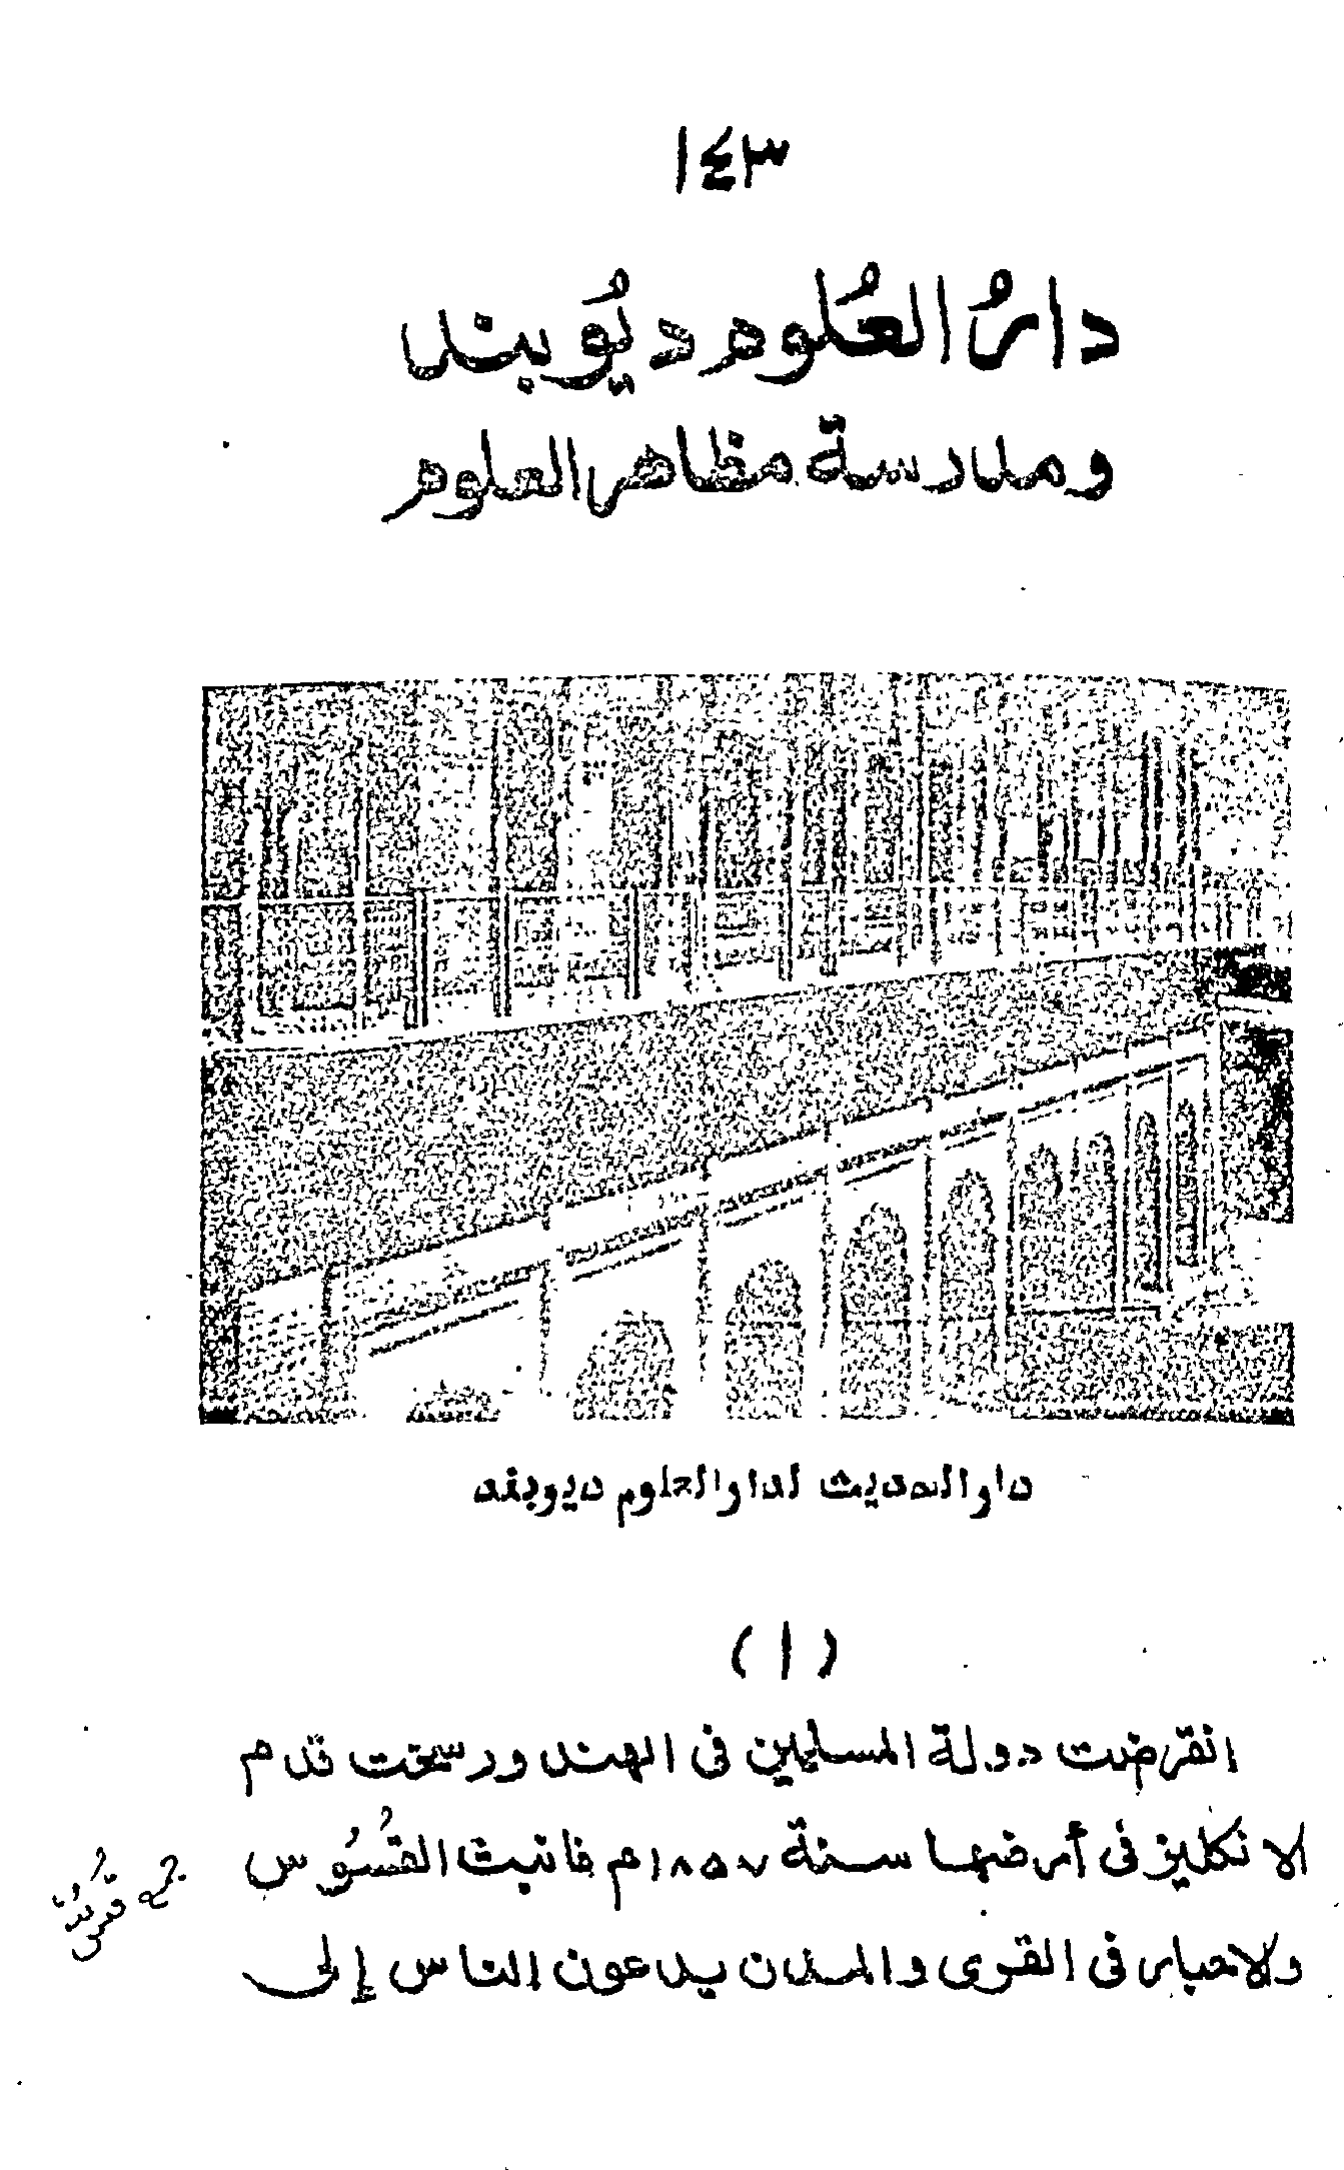 ١٤٣
دارُ العُلوم ديُوبند
ومدرسة مظاهر العلوم
دار الحديث لدار العلوم ديوبند
(١)
انقرضت دولة المسلمين فى الهند ورسخت قدم
الانكليز فى أرضها سنة ١٨٥٧م فانبث القسُوس
والاحبار فى القرى والمدن يدعون الناس إلى